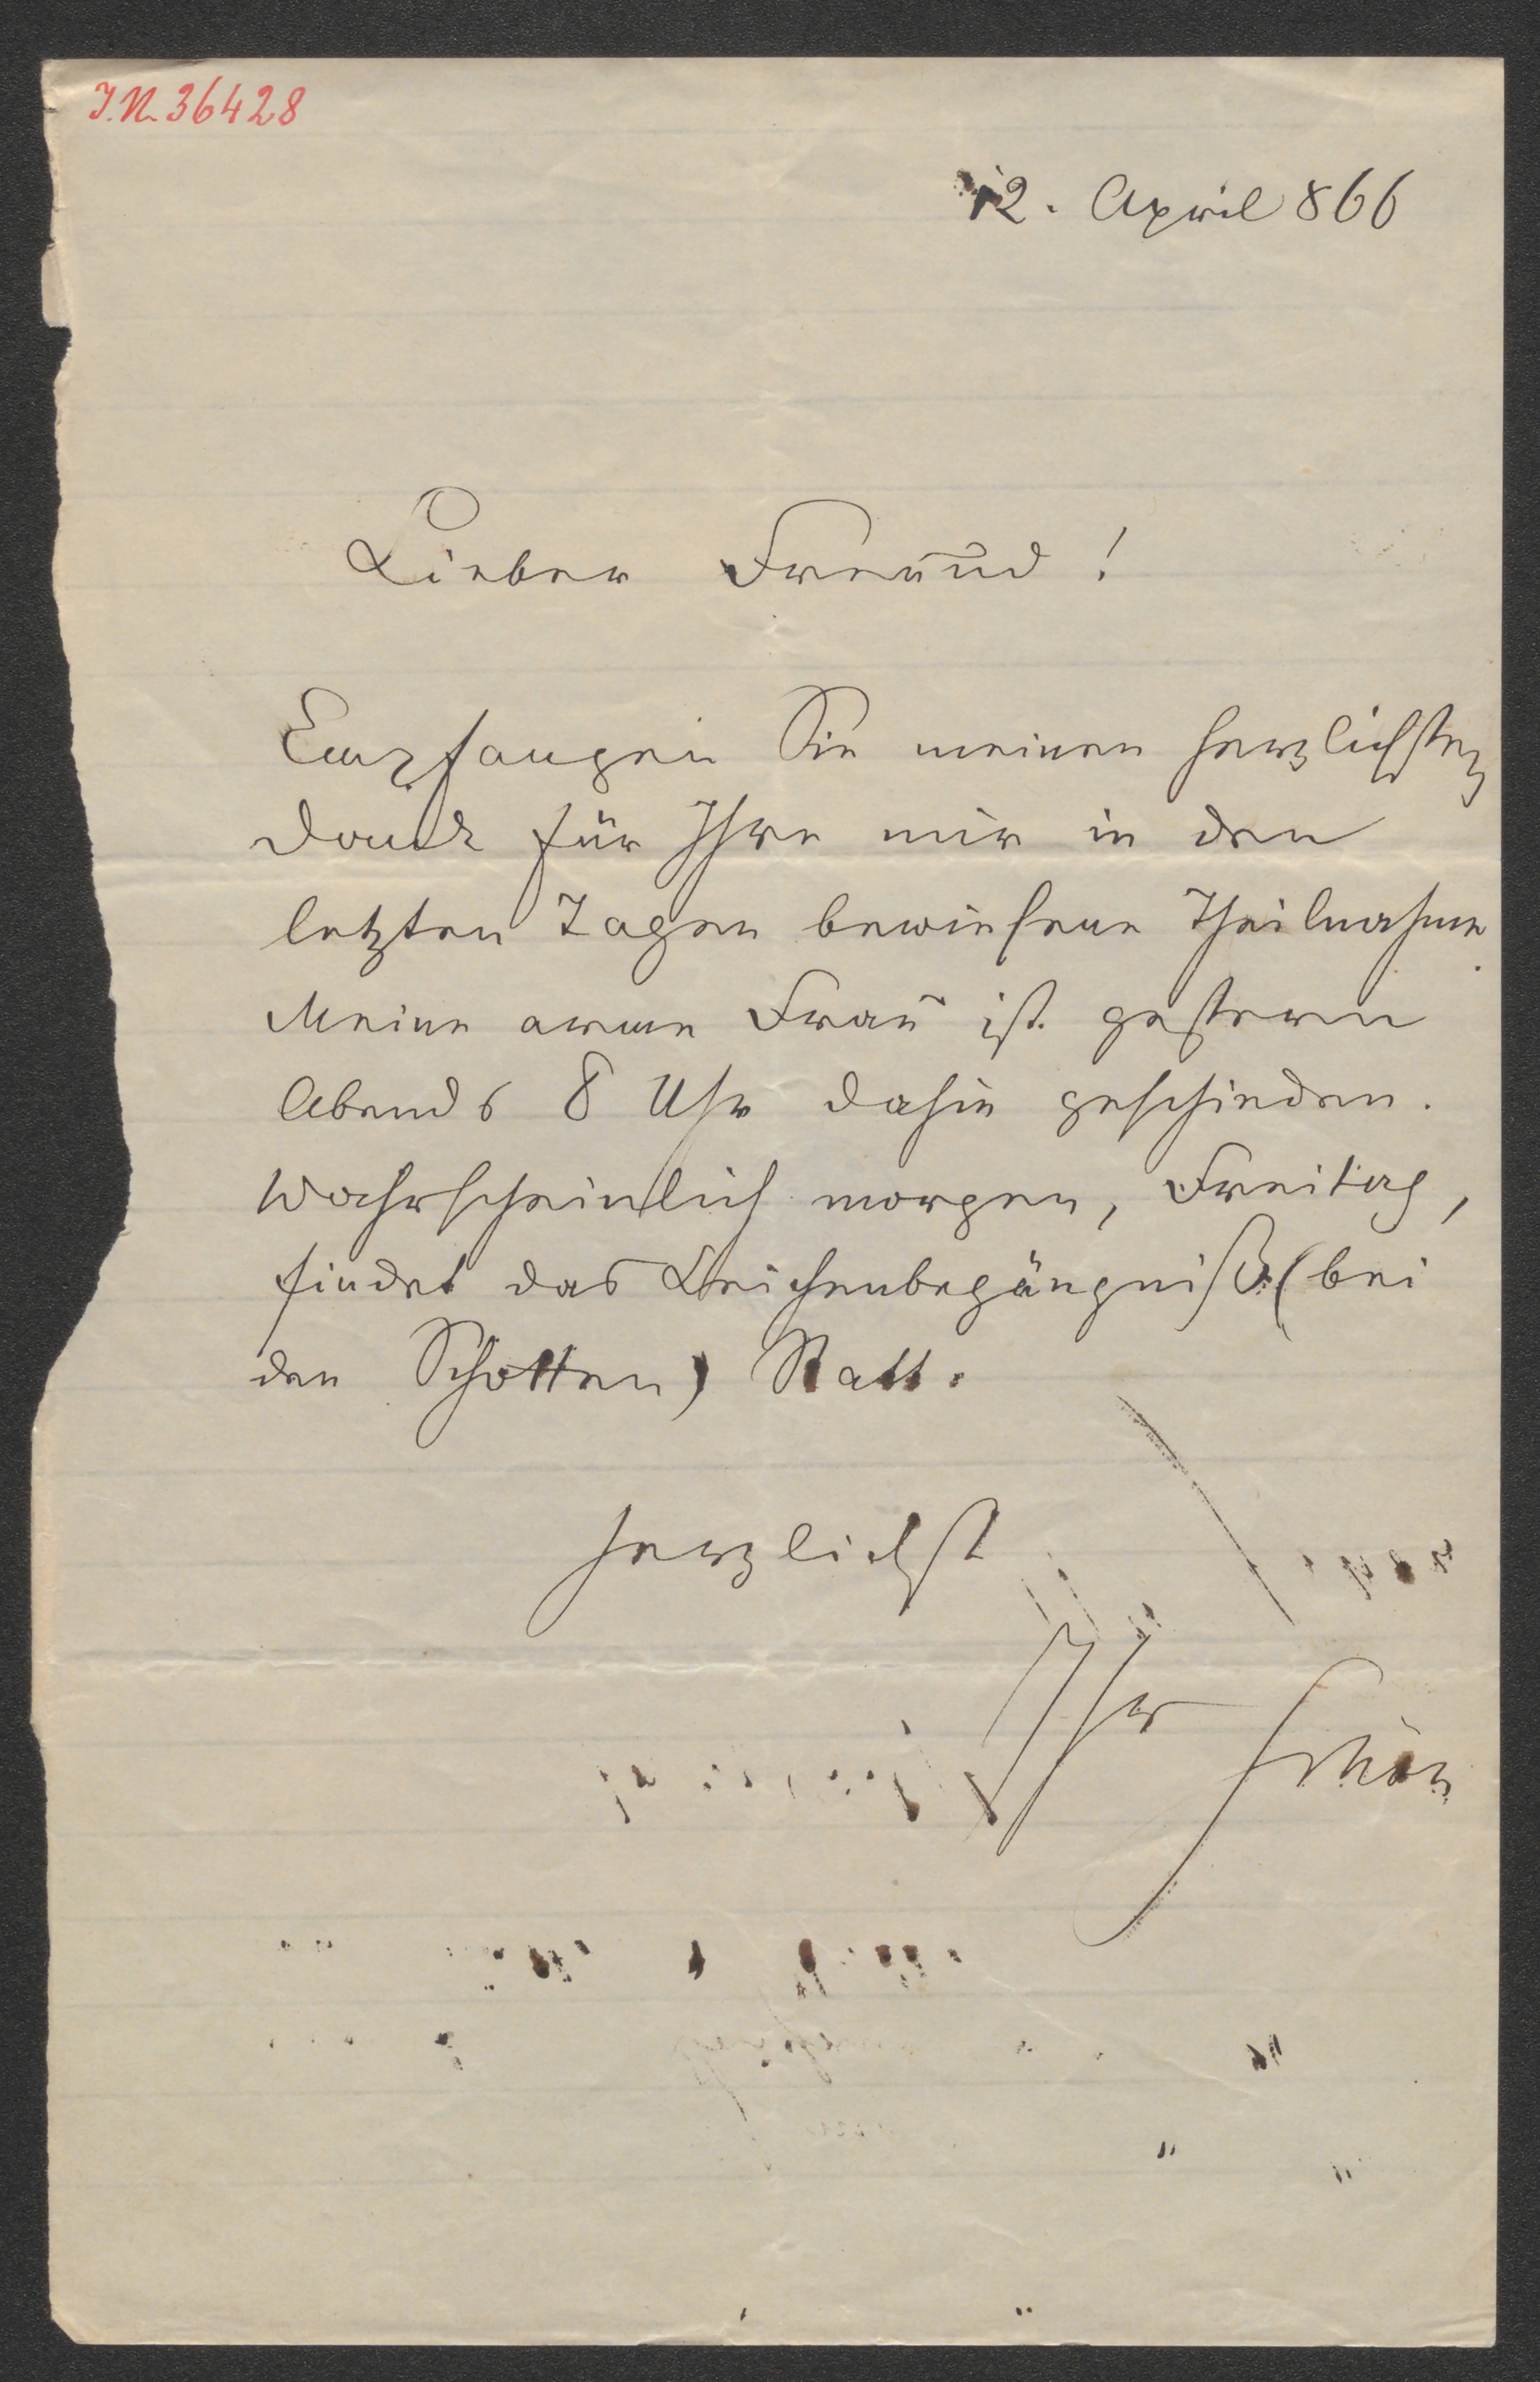 I.N. 36428
12. April 866
Lieber Freund!
Empfangen Sie meinen herzlichsten
Dank für Ihre mir in den
letzten Tagen bewiesene Theilnahme.
Meine arme Frau ist gestern
Abends 8 Uhr dahin geschieden.
Wahrscheinlich morgen, Freitag,
findet das Leichenbegängniß (bei
den Schotten) Statt.
Herzlichst
Ihr